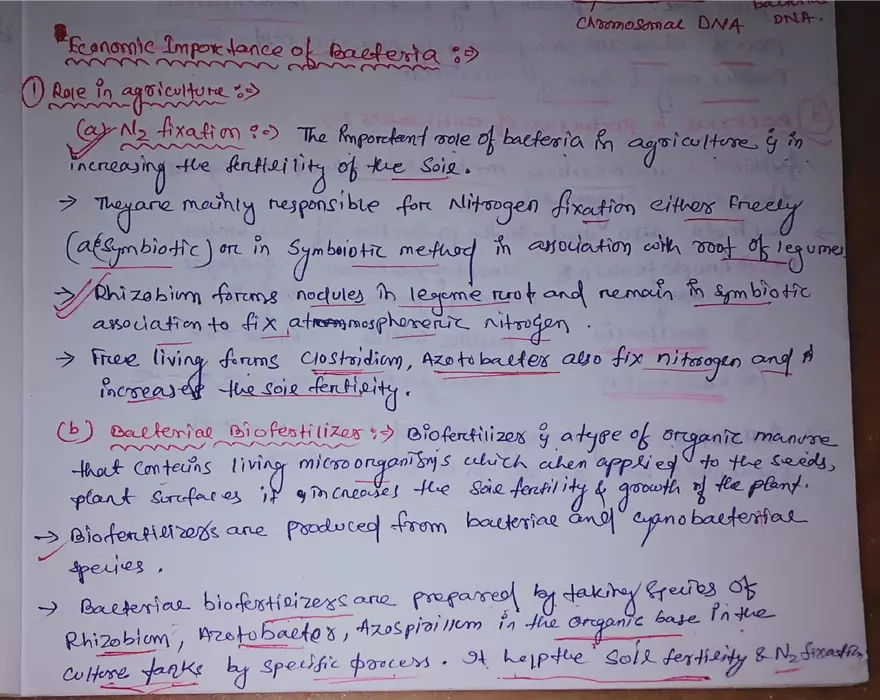 Chromosomal DNA
bacterial DNA.
Economic Importance of Bacteria :→
① Role in agriculture :→
(a) N₂ fixation :→ The important role of bacteria in agriculture is in
increasing the fertility of the soil.
→ They are mainly responsible for Nitrogen fixation either freely
(asymbiotic) or in symboiotic method in association with root of legumes
→ Rhizobium forms nodules in legume root and remain in symbiotic
association to fix atmosphereric nitrogen.
→ Free living forms Clostridium, Azotobacter also fix nitrogen and
increases the soil fertility.
(b) Bacterial Biofertilizer :→ Biofertilizer is a type of organic manure
that contains living microorganism's which when applied to the seeds,
plant surfaces it increases the soil fertility & growth of the plant.
→ Biofertilizers are produced from bacterial and cyanobacterial
species.
→ Bacterial biofertilizers are prepared by taking species of
Rhizobium, Azotobacter, Azospirillum in the organic base in the
culture tanks by specific process. It help the soil fertility & N₂ fixation